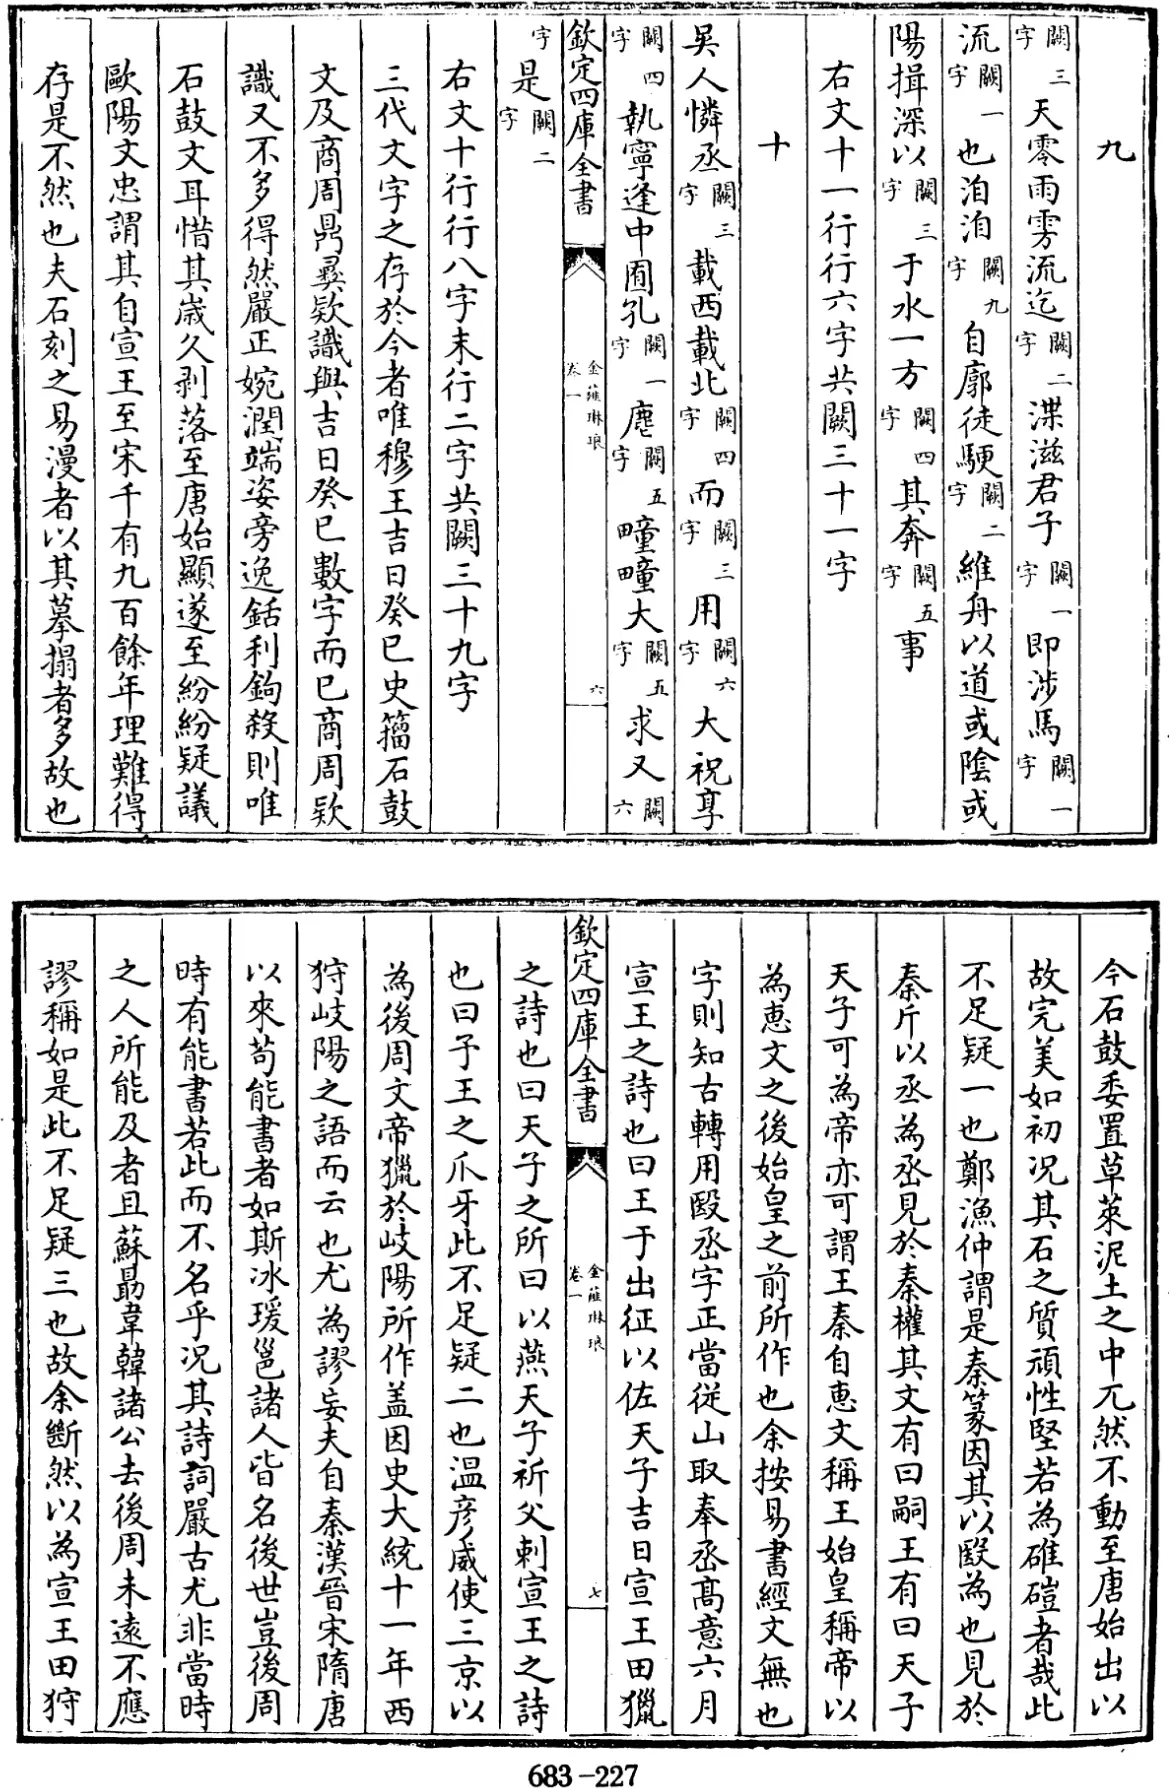 九
闕三字天零雨雱流迄闕二字渫滋君子闕一字即涉馬闕一字
流闕一字也洎洎闕九字自廓徒駛闕二字維舟以道或陰或
陽揖深以闕三字于水一方闕四字其奔闕五字事
右文十一行行六字共闕三十一字
十
吳人憐丞闕三字載西載北闕四字而闕三字用闕六字大祝享
闕四字執寧逢中囿孔闕一字麀闕五字疃疃大闕五字求又闕六
欽定四庫全書
金薤琳琅
卷一
六
字是闕二字
右文十行行八字末行二字共闕三十九字
三代文字之存於今者唯穆王吉日癸巳史籀石鼓
文及商周鼎彞欵識與吉日癸巳數字而已商周欵
識又不多得然嚴正婉潤端姿旁逸銛利鉤殺則唯
石鼓文耳惜其歲久剥落至唐始顯遂至紛紛疑議
歐陽文忠謂其自宣王至宋千有九百餘年理難得
存是不然也夫石刻之易漫者以其摹搨者多故也
今石鼓委置草萊泥土之中兀然不動至唐始出以
故完美如初况其石之質頑性堅若為碓磑者哉此
不足疑一也鄭漁仲謂是秦篆因其以殹為也見於
秦斤以丞為烝見於秦權其文有曰嗣王有曰天子
天子可為帝亦可謂王秦自惠文稱王始皇稱帝以
為惠文之後始皇之前所作也余按易書經文無也
字則知古轉用殹丞字正當從山取奉丞高意六月
宣王之詩也曰王于出征以佐天子吉日宣王田獵
欽定四庫全書
金薤琳琅
卷一
七
之詩也曰天子之所曰以燕天子祈父刺宣王之詩
也曰予王之爪牙此不足疑二也温彦威使三京以
為後周文帝獵於岐陽所作盖因史大統十一年西
狩岐陽之語而云也尤為謬妄夫自秦漢晉宋隋唐
以來苟能書者如斯冰瑗邕諸人皆名後世豈後周
時有能書若此而不名乎况其詩詞嚴古尤非當時
之人所能及者且蘇勗韋韓諸公去後周未遠不應
謬稱如是此不足疑三也故余斷然以為宣王田狩
683-227